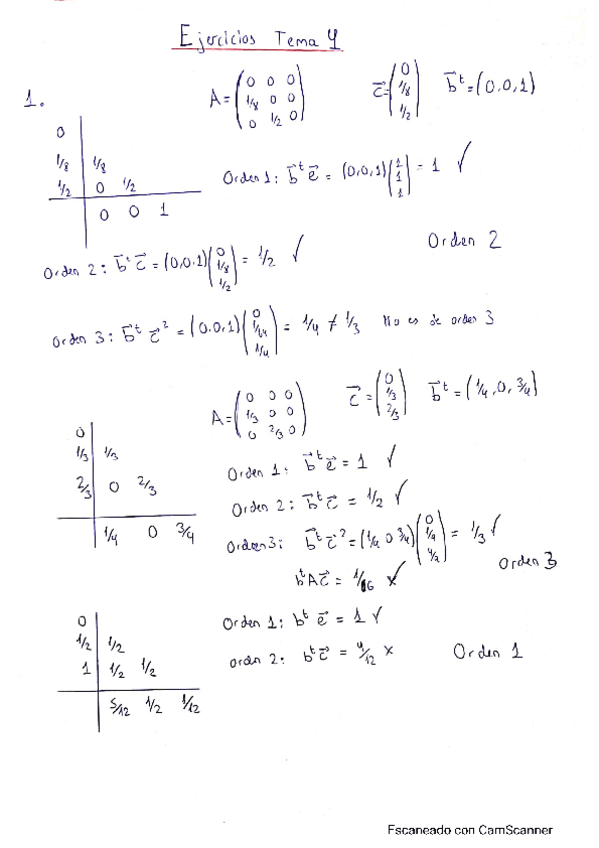 Ejercicios Tema 4
1.
A = (0 0 0; 1/8 0 0; 0 1/2 0) c⃗ = (0; 1/8; 1/2) b⃗ᵗ = (0,0,1)
0 |
1/8 | 1/8
1/2 | 0 1/2
| 0 0 1
Orden 1: b⃗ᵗ e⃗ = (0,0,1)(1; 1; 1) = 1 ✓
Orden 2: b⃗ᵗ c⃗ = (0,0,1)(0; 1/8; 1/2) = 1/2 ✓
Orden 2
Orden 3: b⃗ᵗ c⃗² = (0,0,1)(0; 1/64; 1/4) = 1/4 ≠ 1/3 No es de orden 3
A = (0 0 0; 1/3 0 0; 0 2/3 0) c⃗ = (0; 1/3; 2/3) b⃗ᵗ = (1/4, 0, 3/4)
0 |
1/3 | 1/3
2/3 | 0 2/3
| 1/4 0 3/4
Orden 1: b⃗ᵗ e⃗ = 1 ✓
Orden 2: b⃗ᵗ c⃗ = 1/2 ✓
Orden 3: b⃗ᵗ c⃗² = (1/4 0 3/4)(0; 1/9; 4/9) = 1/3 ✓
bᵗAc⃗ = 1/6
Orden 3
0 |
1/2 | 1/2
1 | 1/2 1/2
| 5/12 1/2 1/12
Orden 1: bᵗ e⃗ = 1 ✓
orden 2: bᵗ c⃗ = 4/12 x
Orden 1
Escaneado con CamScanner